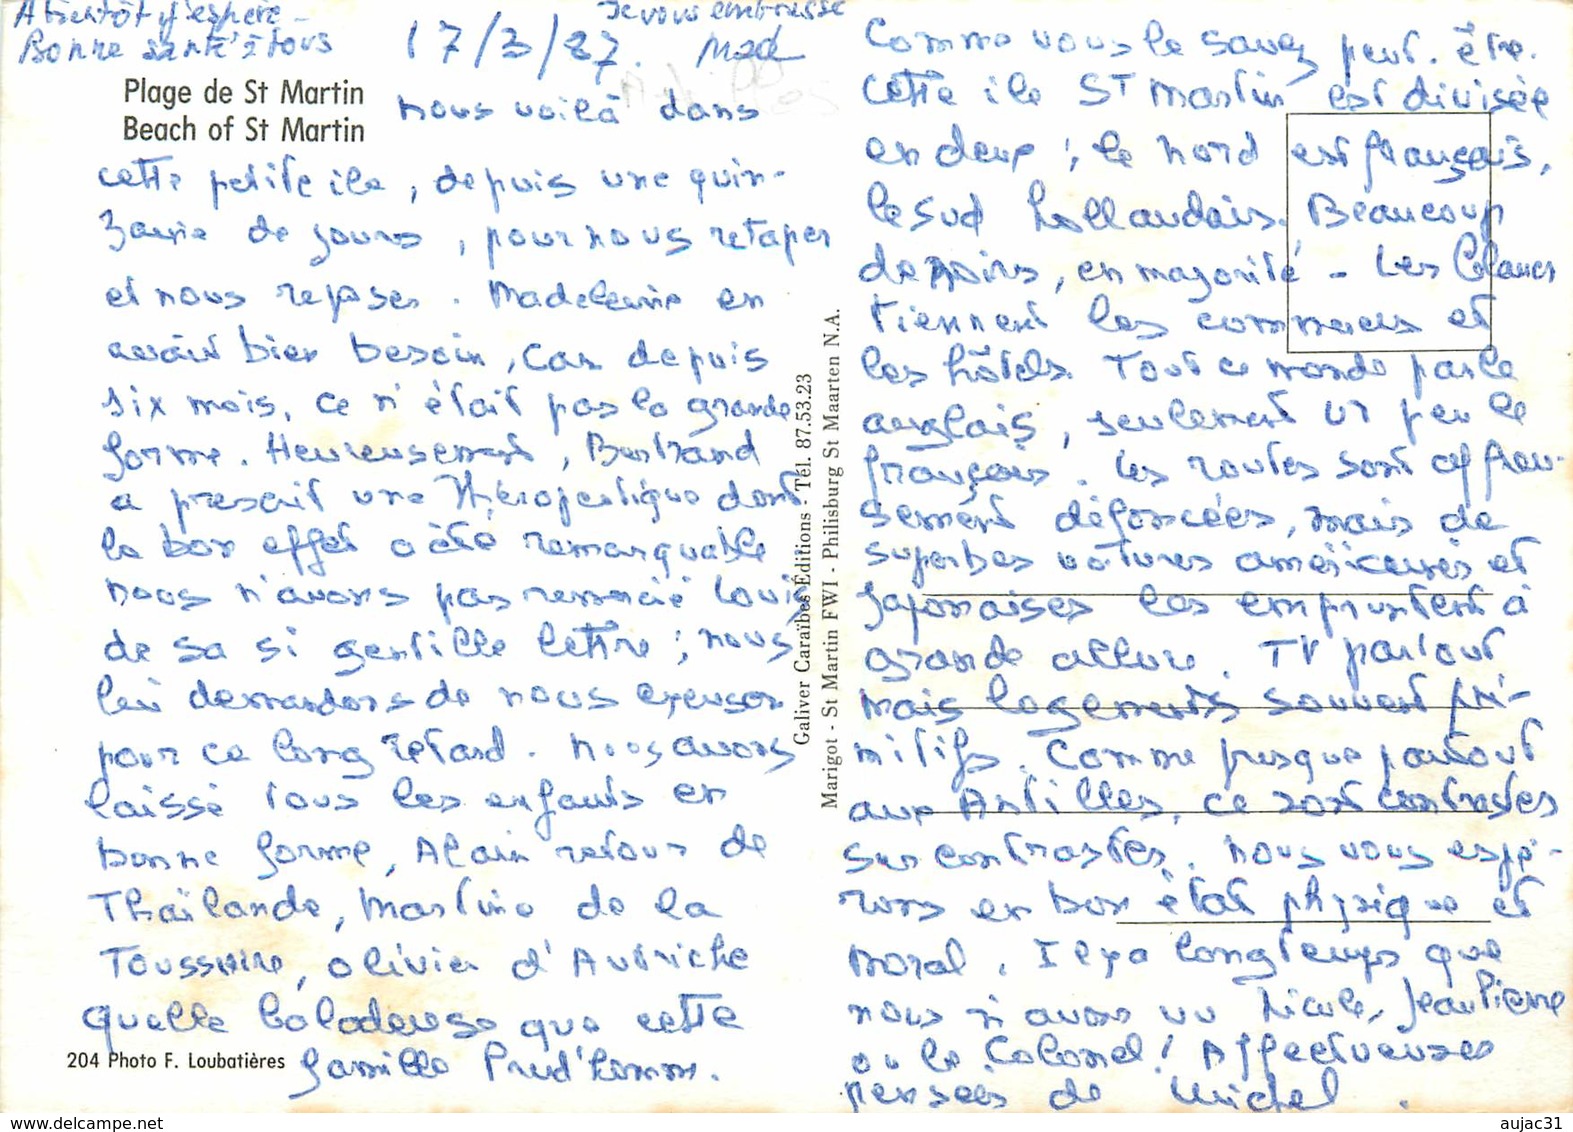 A bientôt j'espère -
Bonne santé à tous
Je vous embrasse
Mad
17/3/87.
Plage de St Martin
Beach of St Martin
Nous voilà dans
cette petite ile, depuis une quin-
zaine de jours, pour nous retaper
et nous reposer. Madeleine en
avait bien besoin, car depuis
six mois, ce n'était pas la grande
forme. Heureusement, Bertrand
a prescrit une thérapeutique dont
le bon effet a été remarquable
Nous n'avons pas remercié Louis
de sa si gentille lettre ; nous
lui demandons de nous excuser
pour ce long retard. Nous avons
laissé tous les enfants en
bonne forme, Alain retour de
Thaïlande, Martine de la
Toussuire, Olivier d'Autriche
quelle baladeuse que cette
famille Prud'homm.
204 Photo F. Loubatières
Galiver Caraïbes Éditions - Tél. 87.53.23
Marigot - St Martin FWI - Philisburg St Maarten N.A.
Comme vous le savez peut-être.
cette ile St Martin est divisée
en deux ; le nord est français,
le sud hollandais. Beaucoup
de noirs, en majorité - Les blancs
tiennent les commerces et
les hôtels. Tout ce monde parle
anglais, seulement un peu le
français. Les routes sont affreu-
sement défoncées, mais de
superbes voitures américaines et
japonaises les empruntent à
grande allure. TV partout
mais logements souvent pri-
mitifs. Comme presque partout
aux Antilles, ce sont contrastes
sur contrastes. Nous vous espé-
rons en bon état physique et
moral. Il y a longtemps que
nous n'avons vu Nicole, Jean Pierre
ou le Colonel ! Affectueuses
pensées de Michel.
aujac31